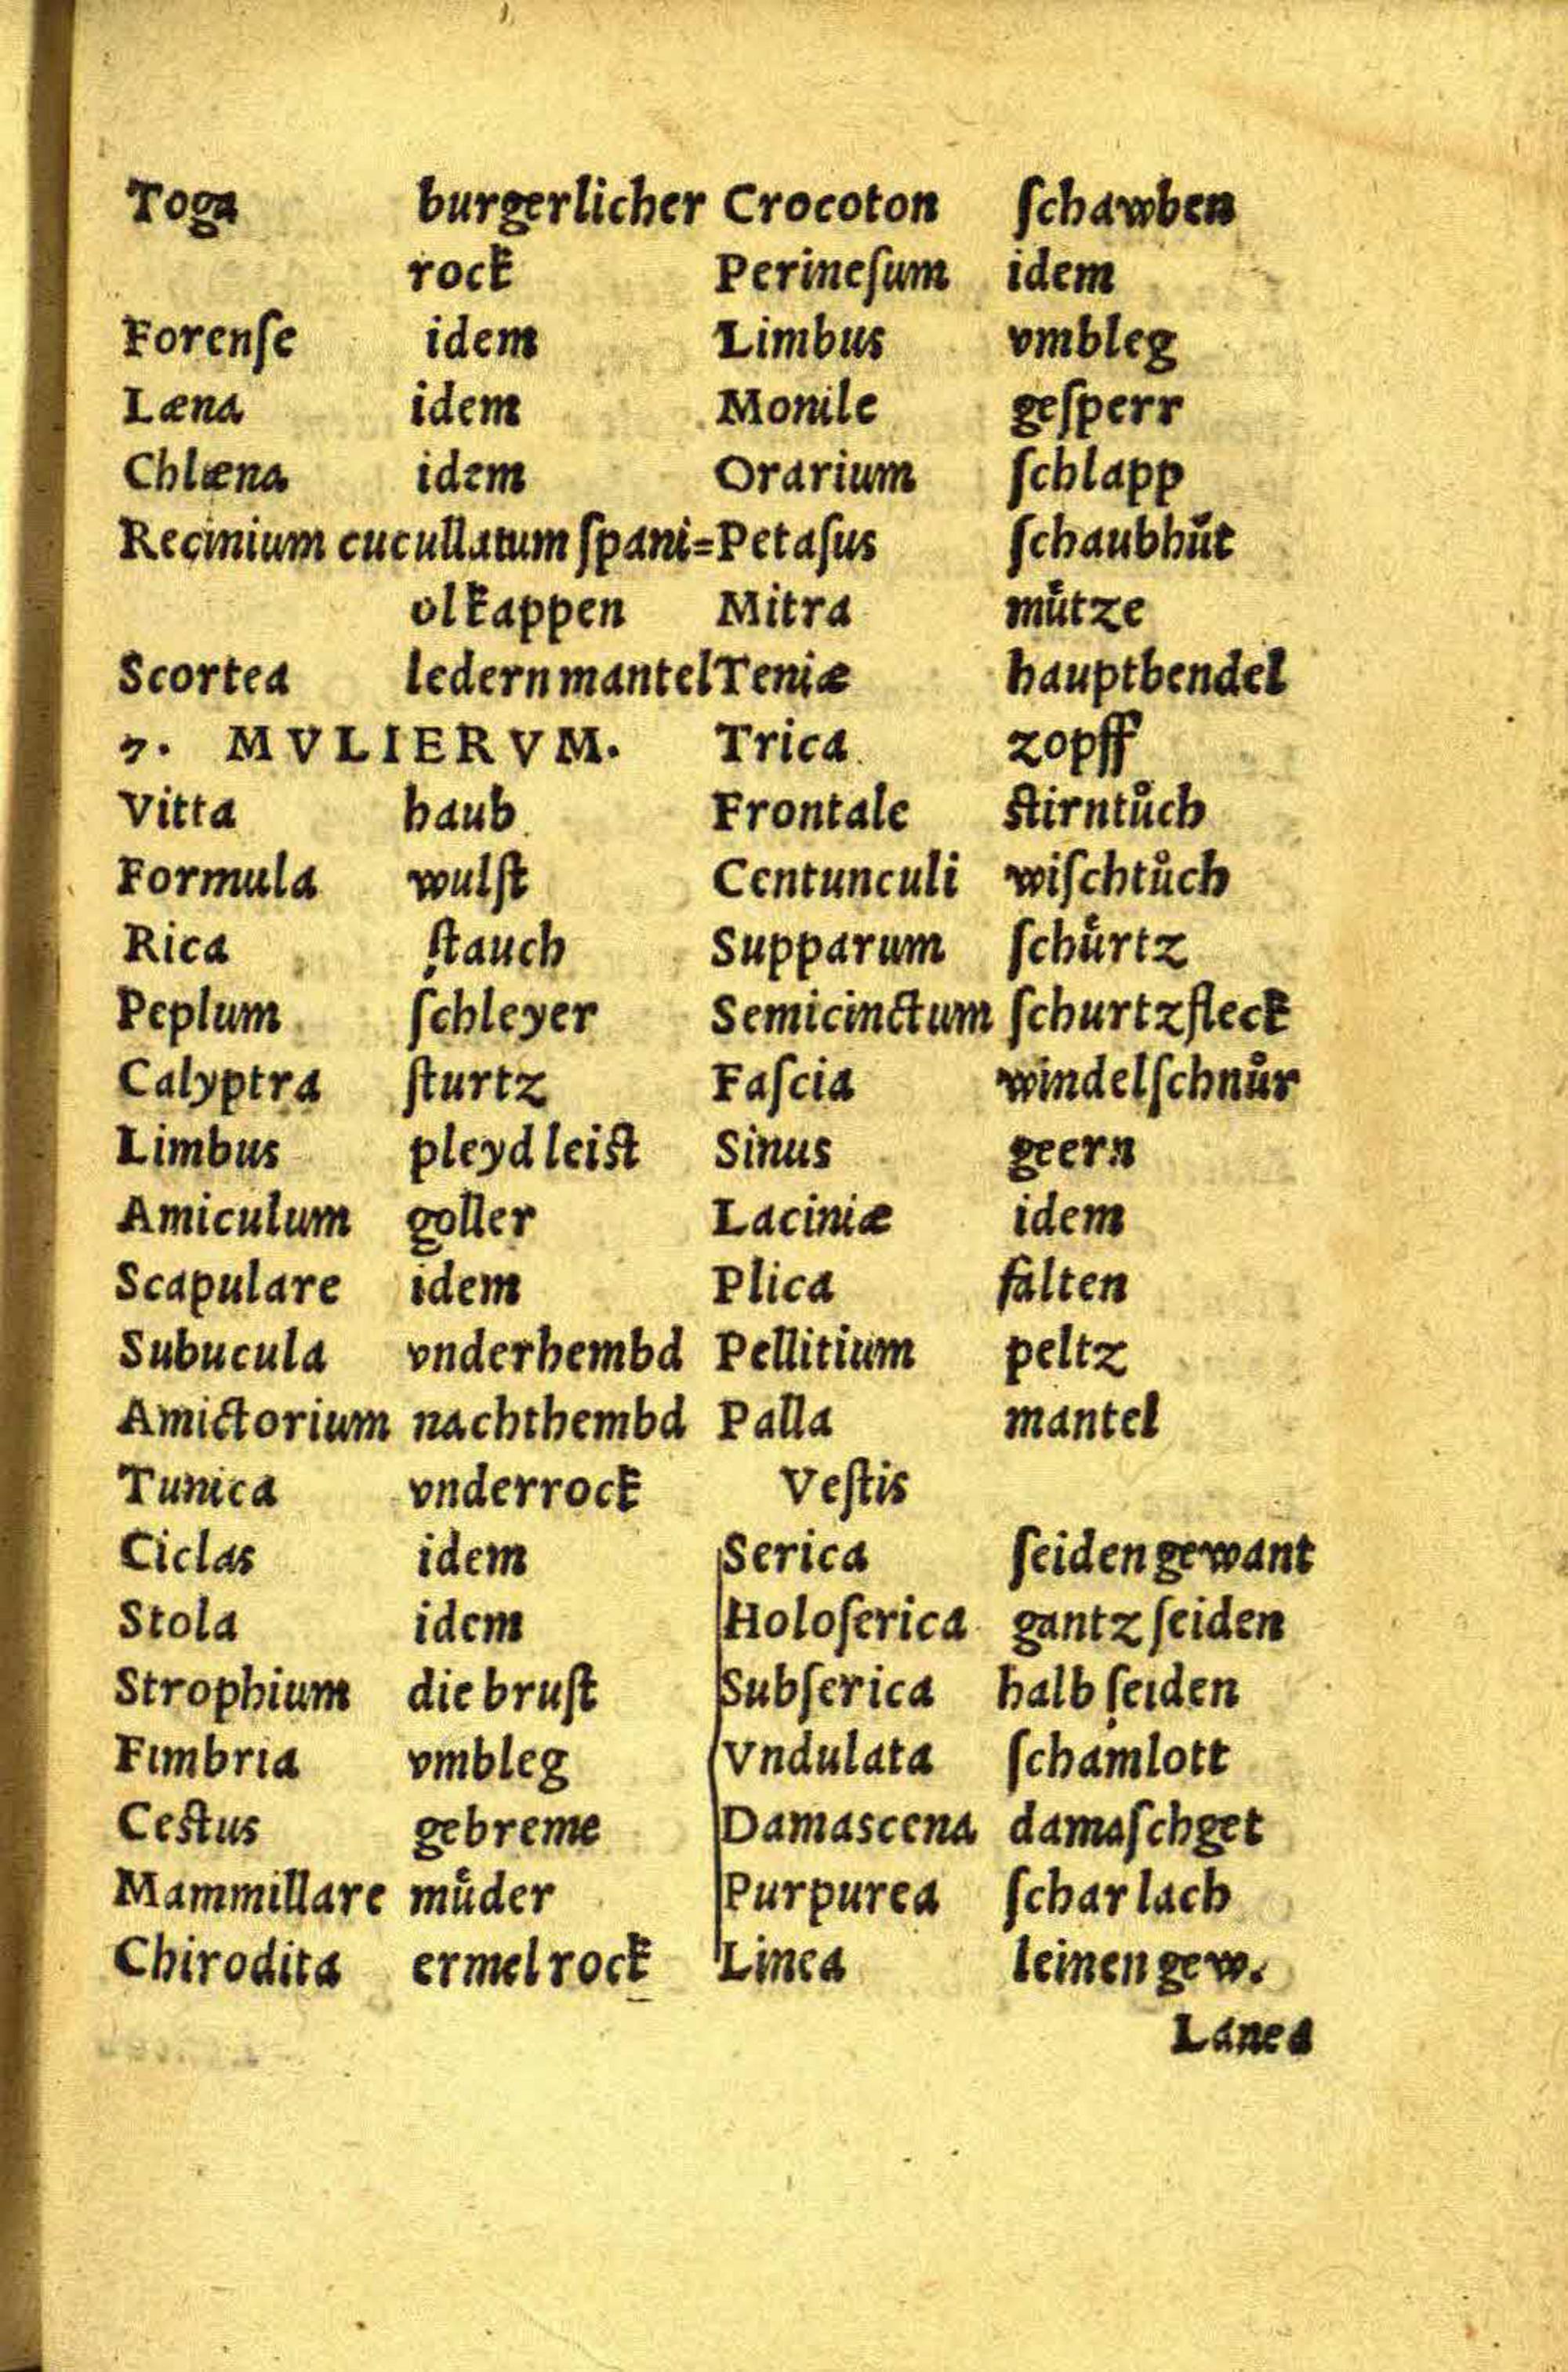 Toga burgerlicher
rock
Forenſe idem
Læna idem
Chlæna idem
Recinium cucullatum ſpani=
olkappen
Scortea ledern mantel
7. MVLIERVM.
Vitta haub
Formula wulſt
Rica ſtauch
Peplum ſchleyer
Calyptra ſturtz
Limbus pleyd leiſt
Amiculum goller
Scapulare idem
Subucula vnderhembd
Amictorium nachthembd
Tunica vnderrock
Ciclas idem
Stola idem
Strophium die bruſt
Fimbria vmbleg
Ceſtus gebreme
Mammillare muͤder
Chirodita ermel rock
Crocoton ſchawben
Perineſum idem
Limbus vmbleg
Monile geſperr
Orarium ſchlapp
Petaſus ſchaubhuͤt
Mitra muͤtze
Teniæ hauptbendel
Trica zopff
Frontale ſtirntuͦch
Centunculi wiſchtuͦch
Supparum ſchuͤrtz
Semicinctum ſchurtzfleck
Faſcia windelſchnuͦr
Sinus geern
Laciniæ idem
Plica falten
Pellitium peltz
Palla mantel
Veſtis
Serica ſeiden gewant
Holoſerica gantz ſeiden
Subſerica halb ſeiden
Vndulata ſchamlott
Damascena damaſchget
Purpurea ſcharlach
Linea leinen gew.
Lanea